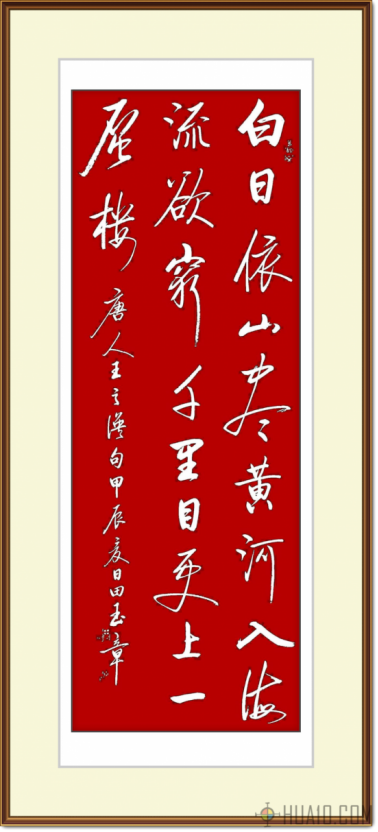 白日依山尽黄河入海
流欲穷千里目更上一
层楼
唐人王之涣句甲辰夏日田玉章
HUA10.COM